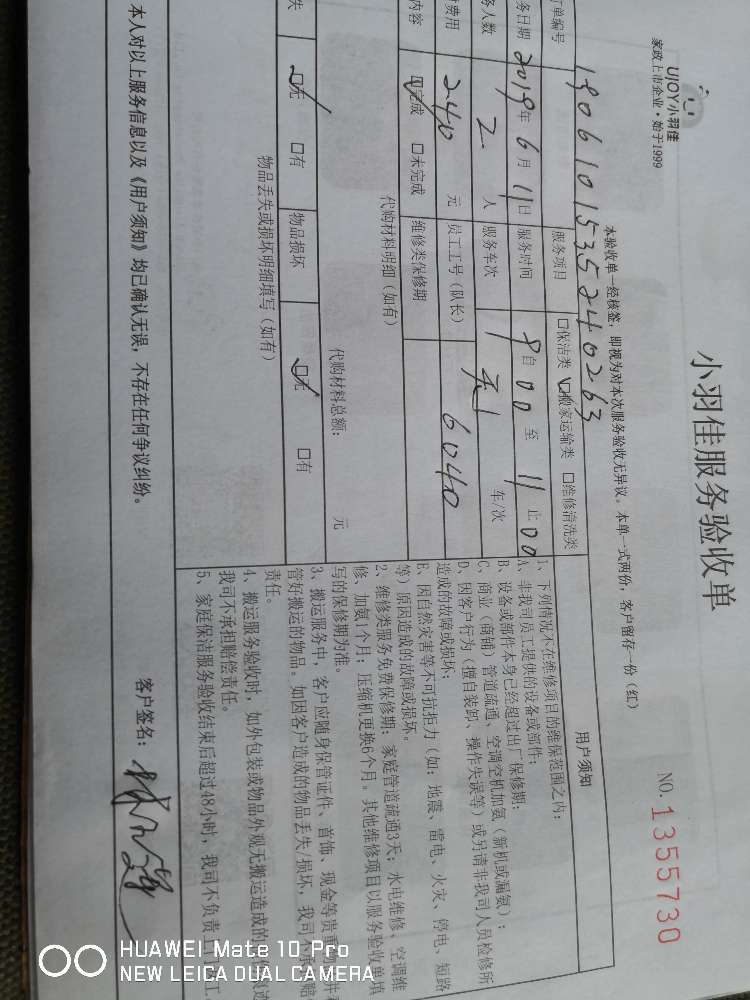 UJOY小羽佳
家政上市企业·始于1999
小羽佳服务验收单
NO.1355730
本验收单一经核签，即视为对本次服务验收无异议。本单一式两份，客户留存一份（红）
订单编号 19061015352402 63
服务项目 口保洁类 口搬家运输类 口维修清洗类
务日期 2019年6月11日 服务时间 8自00至11止00
务人数 2人 服务车次 1车/次
费用 240元 员工工号（队长） 6040
内容 口完成 口未完成 维修类保修期
代购材料明细（如有）
代购材料总额： 元
失 口无 口有 物品损坏 口无 口有
物品丢失或损坏明细填写（如有）
用户须知
1、下列情况不在维修项目的维保范围之内：
A、非我司员工提供的设备或部件；
B、设备或部件本身已经超过出厂保修期；
C、商业（商铺）管道疏通、空调空机加氨（新机或漏氨）；
D、因客户行为（擅自装卸、操作失误等）或另请非我司人员检修所
造成的故障或损坏；
E、因自然灾害等不可抗拒力（如：地震、雷电、火灾、停电、短路
等）原因造成的故障或损坏。
2、维修类服务免费保修期：家庭管道疏通3天；水电维修、空调维
修、加氨1个月；压缩机更换6个月。其他维修项目以服务验收单填
写的保修期为准。
3、搬运服务中，客户应随身保管证件、首饰、现金等贵重物
管好搬运的物品。如因客户造成的物品丢失/损坏，我司不承
责任。
4、搬运服务验收时，如外包装或物品外观无搬运造成的
我司不承担赔偿责任。
5、家庭保洁服务验收结束后超过48小时，我司不负责
本人对以上服务信息以及《用户须知》均已确认无误，不存在任何争议纠纷。
客户签名：
HUAWEI Mate 10 Pro
NEW LEICA DUAL CAMERA